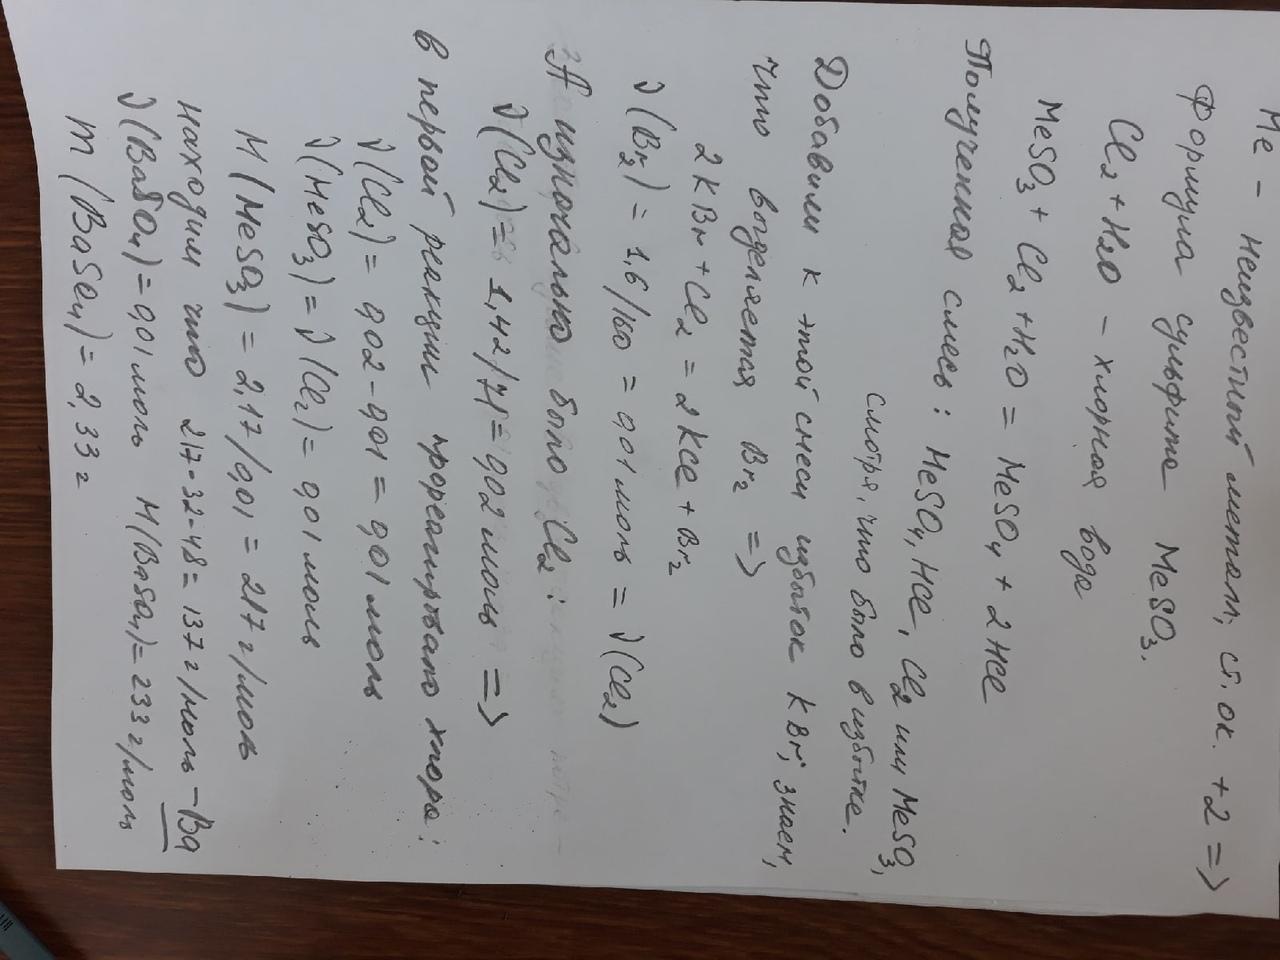 Me - неизвестный металл, ст. ок. +2 =>
Формула сульфита MeSO₃.
Cl₂ + H₂O - хлорная вода
MeSO₃ + Cl₂ + H₂O = MeSO₄ + 2HCl
Полученная смесь: MeSO₄, HCl, Cl₂ или MeSO₃,
смотря, что было в избытке.
Добавили к этой смеси избыток KBr, знаем,
что выделяется Br₂ =>
2KBr + Cl₂ = 2KCl + Br₂
ν(Br₂) = 1,6/160 = 0,01 моль = ν(Cl₂)
А изначально было Cl₂:
ν(Cl₂) = 1,42/71 = 0,02 моль =>
в первой реакции прореагировало хлора:
ν(Cl₂) = 0,02 - 0,01 = 0,01 моль
ν(MeSO₃) = ν(Cl₂) = 0,01 моль
M(MeSO₃) = 2,17/0,01 = 217 г/моль
находим что 217-32-48 = 137 г/моль - Ba
ν(BaSO₄) = 0,01 моль M(BaSO₄) = 233 г/моль
m(BaSO₄) = 2,33 г